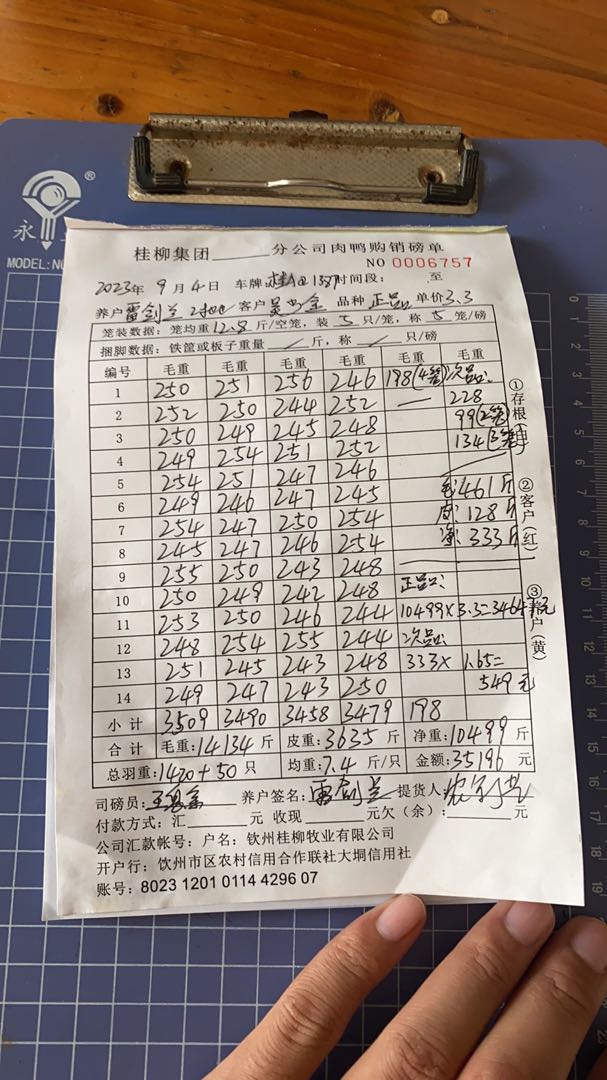 永
®
MODEL:NO
桂柳集团______分公司肉鸭购销磅单
NO 0006757
2023年 9 月 4 日 车牌 时间段: 至
养户 雷剑兰 客户 品种 正品 单价 3.3
笼装数据: 笼均重 12.8 斤/空笼，装 5 只/笼，称 5 笼/磅
捆脚数据: 铁筐或板子重量 / 斤，称 / 只/磅
编号 毛重 毛重 毛重 毛重 毛重 毛重
1 250 251 256 246 198(4笼) 次品:
2 252 250 244 252 — 228
3 250 249 245 248 99(2笼)
4 249 254 251 252 134(3笼)
5 254 251 247 246
6 249 246 247 245 毛:461斤
7 254 247 250 254 皮:128斤
8 245 247 246 254 净:333斤
9 255 250 243 248
10 250 249 242 248 正品:
11 253 250 246 244 10499×3.3=34647元
12 248 254 255 244 次品:
13 251 245 243 248 333× 1.65=
14 249 247 243 250 549元
小计 3509 3490 3458 3479 198
合计 毛重:14134斤 皮重:3635斤 净重:10499斤
总羽重:1420+50只 均重:7.4斤/只 金额:35196元
司磅员: 养户签名: 雷剑兰 提货人:
付款方式: 汇______元 收现______元欠(余):______元
公司汇款帐号: 户名: 钦州桂柳牧业有限公司
开户行: 钦州市区农村信用合作联社大垌信用社
账号: 8023 1201 0114 4296 07
①存根(白)
②客户(红)
③养户(黄)